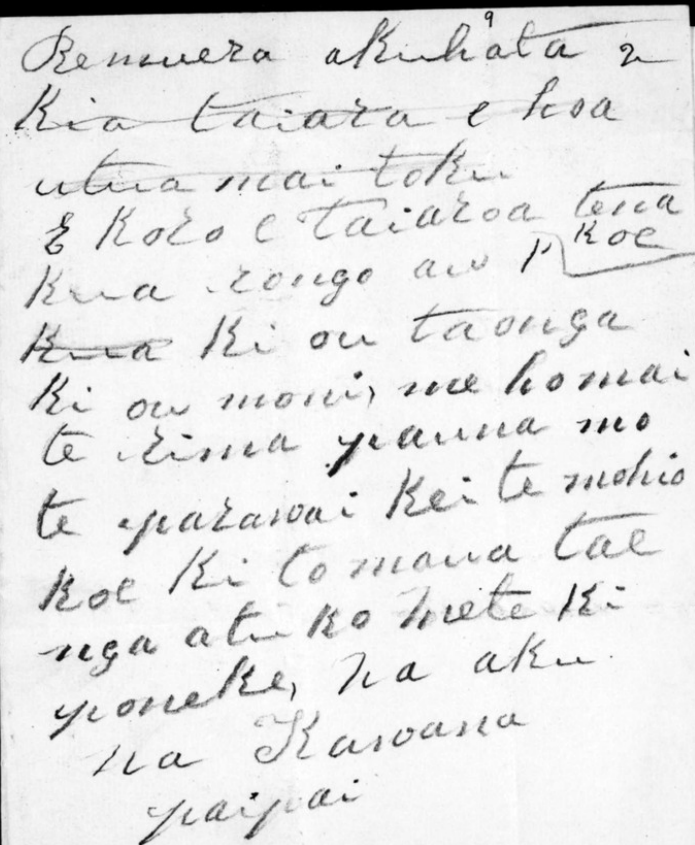 Remuera akuhata 2
9
Kia taiara e hoa
utua mai toku
E Koro e Taiaroa tena
koe
Kua rongo au
Kua Ki ou taonga
Ki ou moni, me homai
te rima pauna mo
te parawai Kei te mohio
koe Ki to maua tae
nga atu ko hete Ki
poneke, na aku
na Kawana
paipai